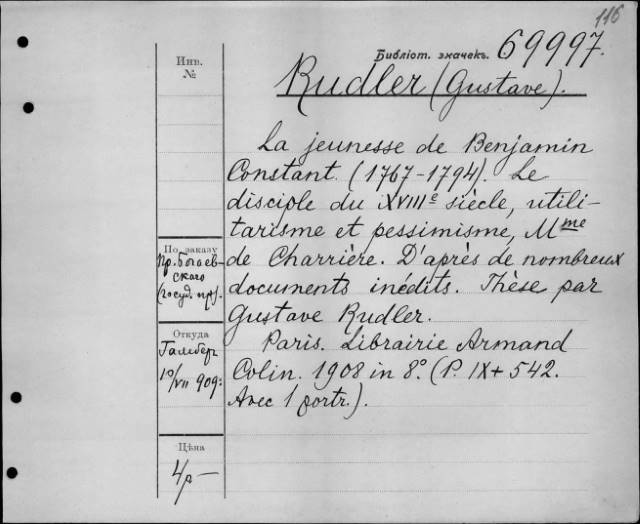 116
Инв.
№
Библіот. значекъ. 69997.
Rudler (Gustave).
La jeunesse de Benjamin
Constant. (1767-1794). Le
disciple du XVIIIe siècle, utili-
tarisme et pessimisme, Mme
de Charrière. D'après de nombreux
documents inédits. Thèse par
Gustave Rudler.
Paris. Librairie Armand
Colin. 1908 in 8°. (P. IX+542.
Avec 1 portr.).
По заказу
пр. Богаев-
скаго
(госуд. пр).
Откуда
10/VII 909.
Цѣна
4р-